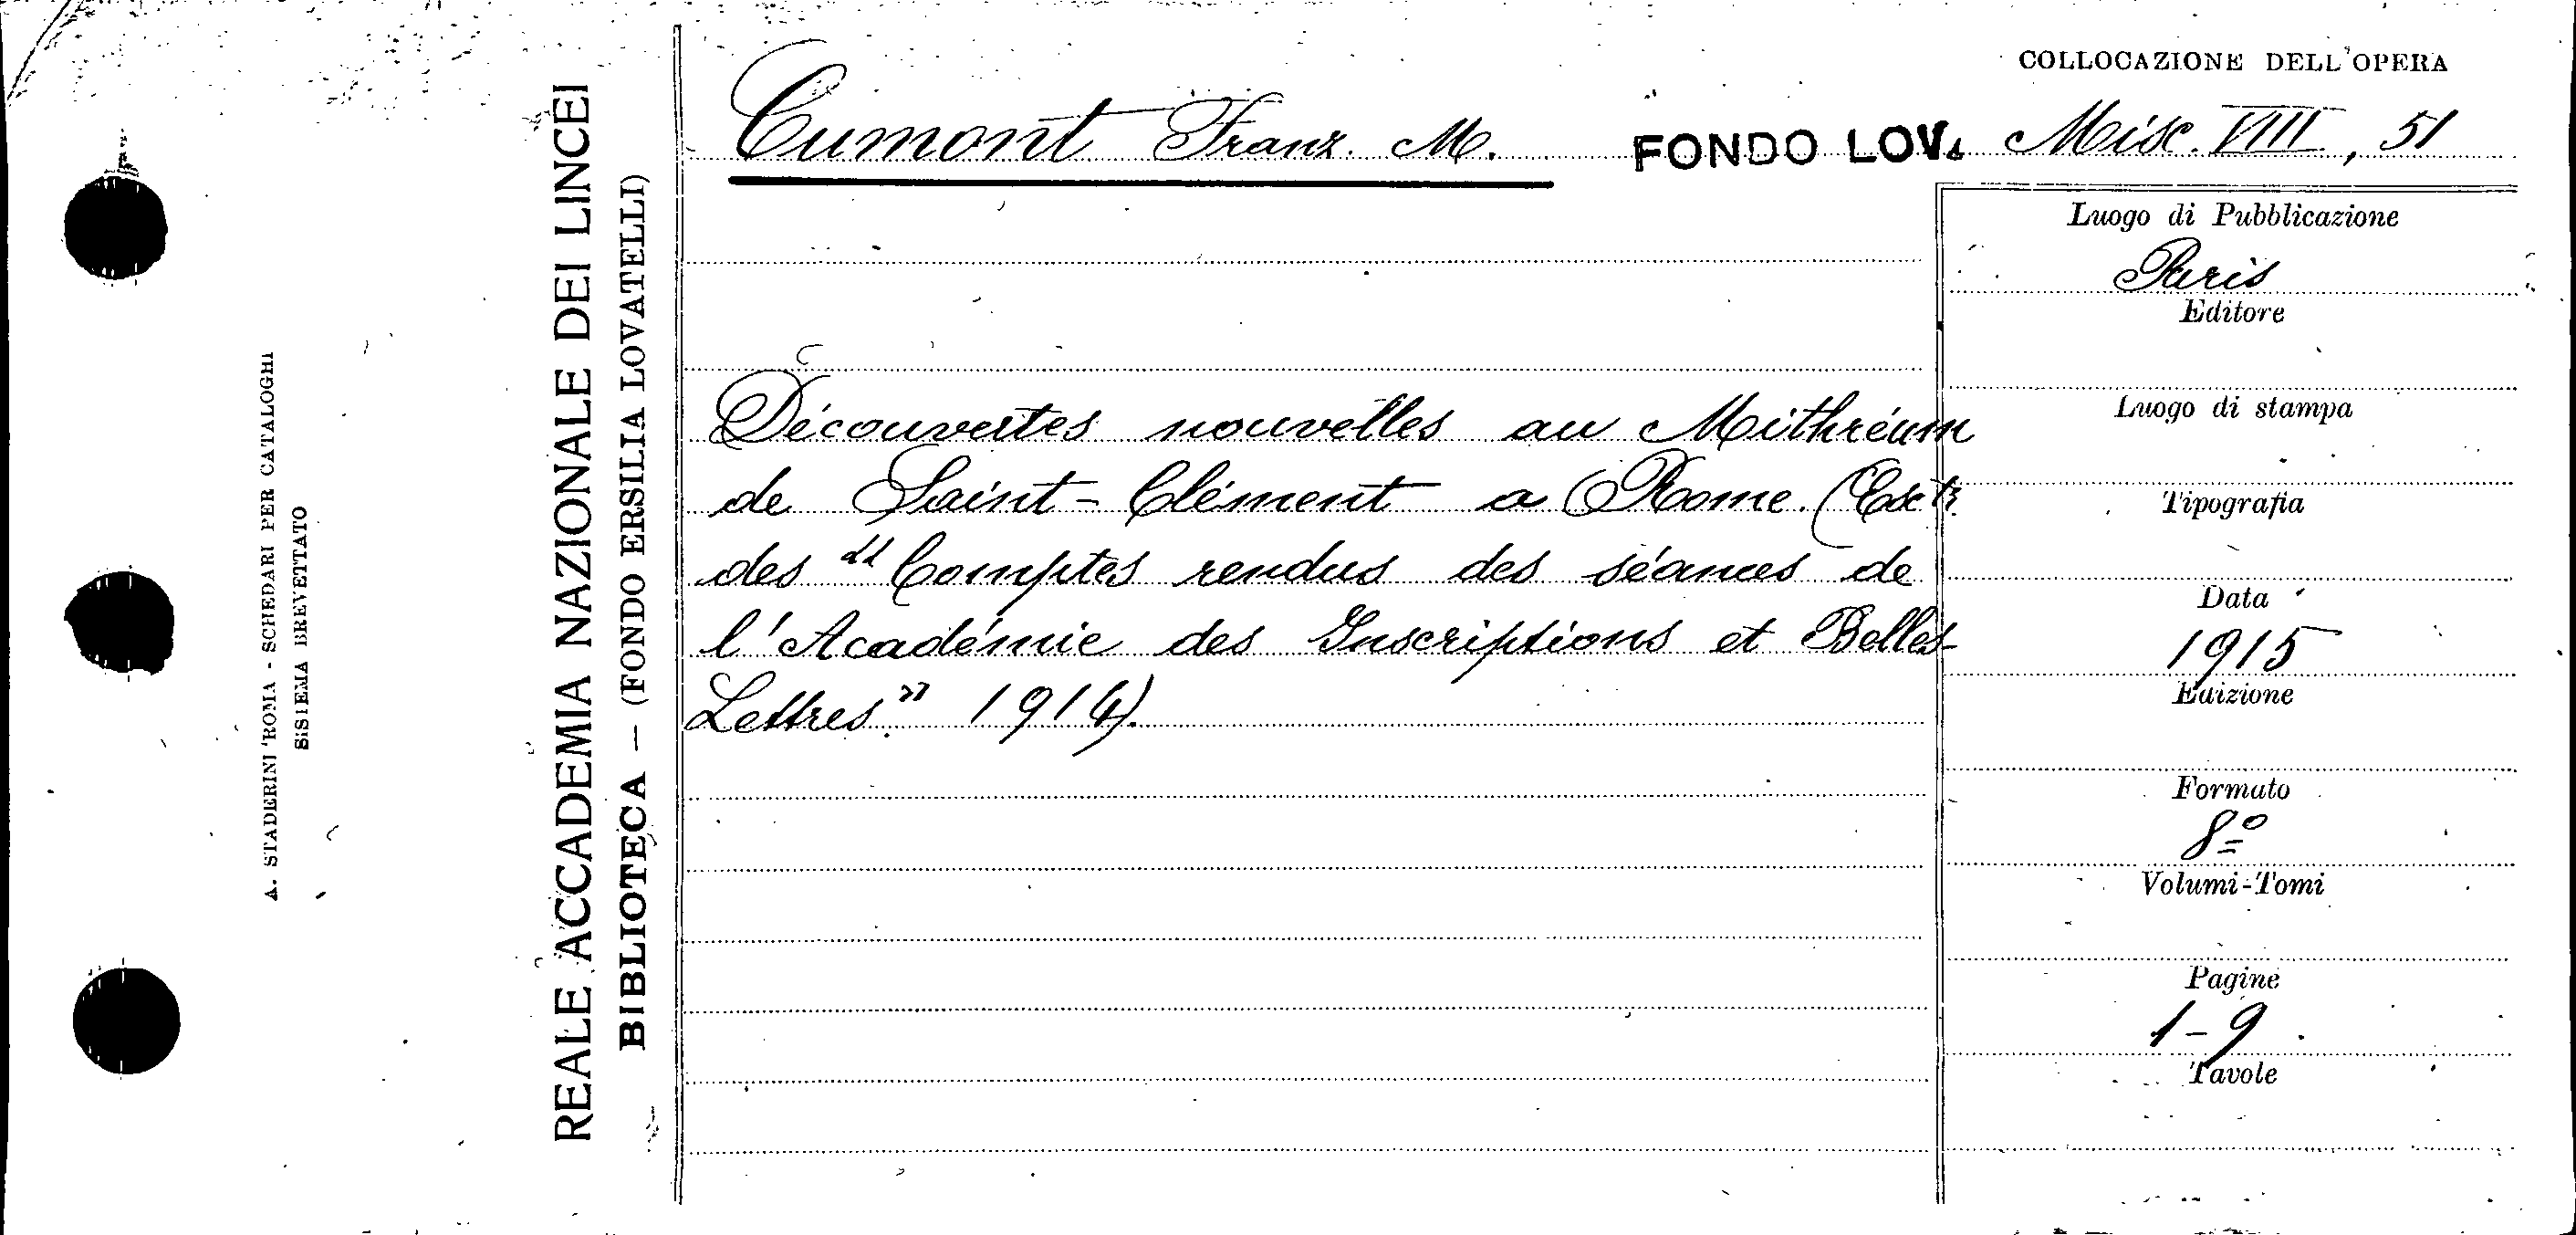 A. STADERINI ROMA - SCHEDARI PER CATALOGHI
SISTEMA BREVETTATO
REALE ACCADEMIA NAZIONALE DEI LINCEI
BIBLIOTECA — (FONDO ERSILIA LOVATELLI)
COLLOCAZIONE DELL'OPERA
Cumont Franz. M. FONDO LOV. Misc. VIII, 51
Découvertes nouvelles au Mithréum
de Saint-Clément a Rome. (Extr.
des "Comptes rendus des séances de
l'Académie des Inscriptions et Belles-
Lettres" 1914).
Luogo di Pubblicazione
Paris
Editore
Luogo di stampa
Tipografia
Data
1915
Edizione
Formato
8º
Volumi-Tomi
Pagine
1-9
Tavole